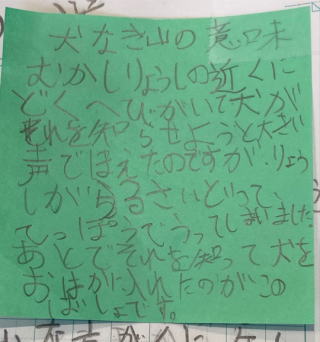 犬なき山の意味
むかしりょうしの近くに
どくへびがいて犬が
それを知らせようと大きい
声でほえたのですが、りょう
しがうるさいといって、
てっぽうでうってしまいました
あとでそれを知って犬を
おはかに入れたのがこの
ばしょです。